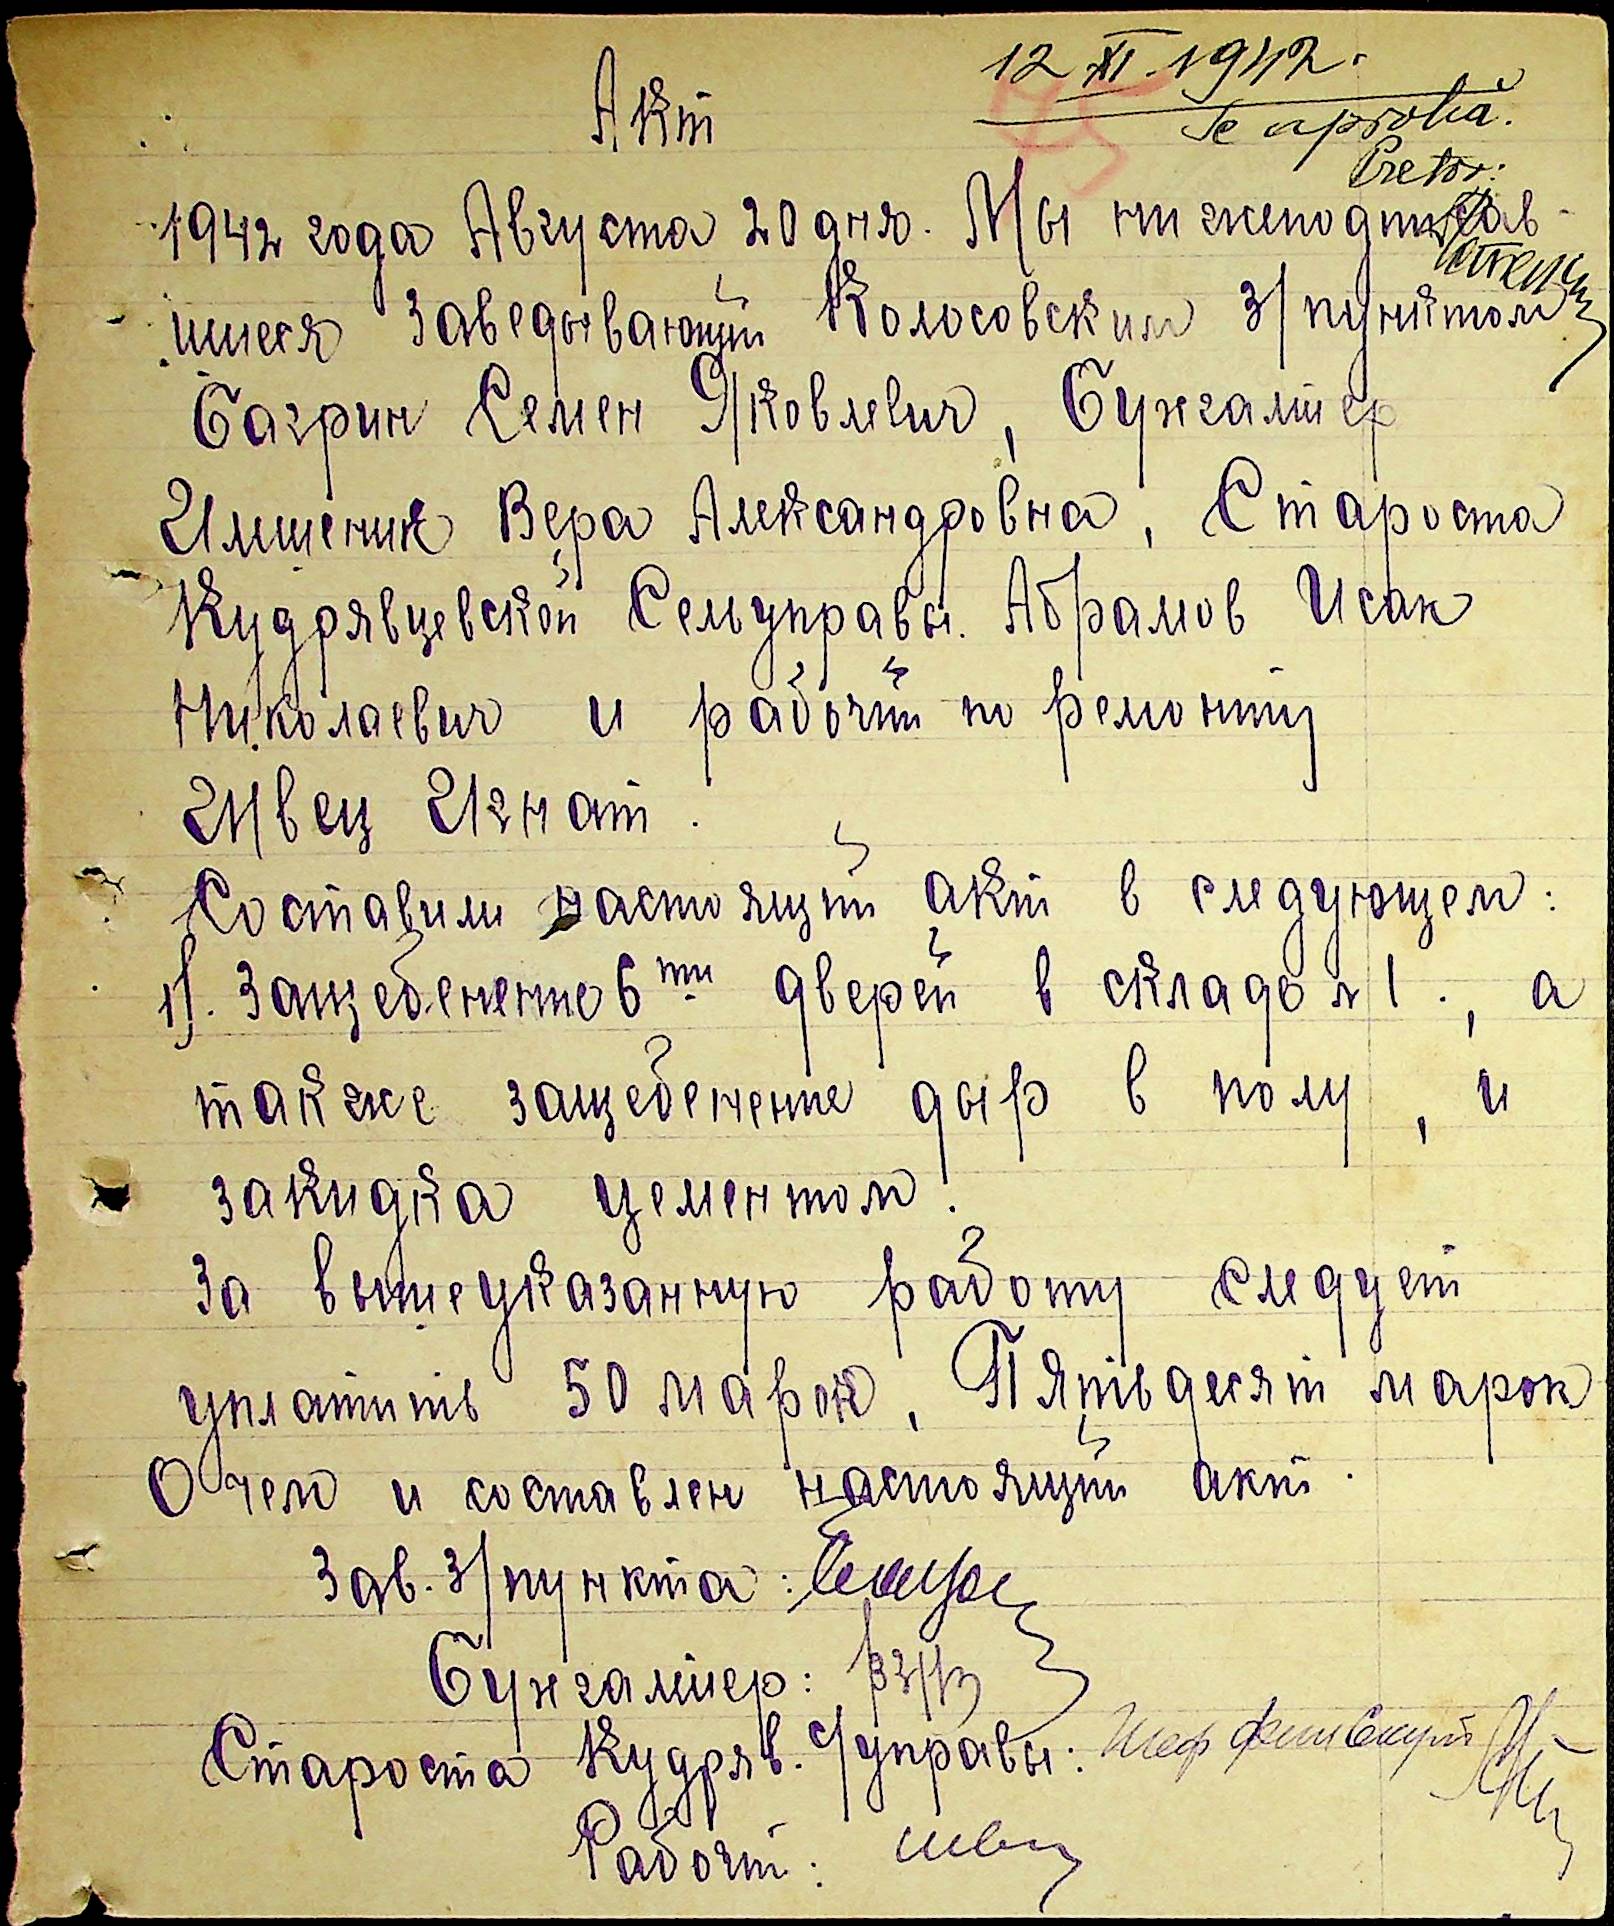 12 XI 1942.
Se aprobă.
Pretor:
Акт
1942 года Августа 20 дня. Мы нижеподписав-
шиеся Заведывающий Колосовским З/пунктом
Багрин Семен Яковлевич, Бухгалтер
Имшеник Вера Александровна, Староста
Кудрявцевской Сельуправы. Абрамов Исак
Николаевич и рабочий по ремонту
Швец Игнат.
Составили настоящий акт в следующем:
1). Защебенение 6ти дверей в складе № 1., а
также защебенение дыр в полу, и
закидка цементом.
За вышеуказанную работу следует
уплатить 50 марок, Пятьдесят марок
О чем и составлен настоящий акт.
Зав. З/пункта:
Бухгалтер:
Староста Кудряв. С/управы:
Рабочий: швец